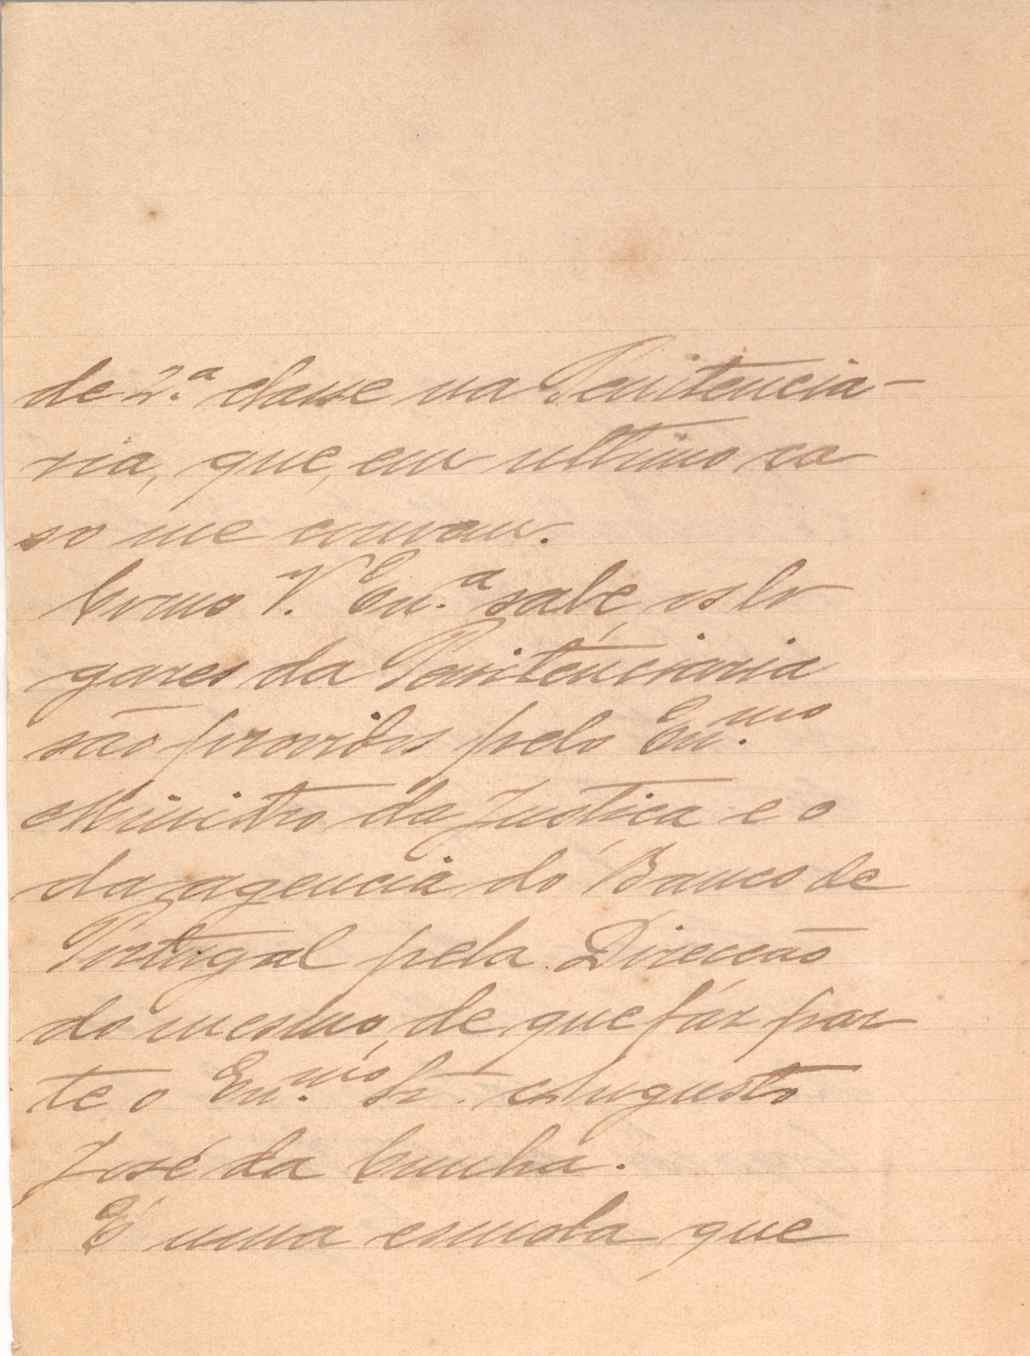 de 2.ª classe na Penitencia-
ria, que, em ultimo ca
so me convem.
Como V. Ex.ª sabe, os lo
gares da Penitenciaria
são providos pelo Ex.mo
Ministro da Justiça e o
da agencia do Banco de
Portugal pela Direcção
do mesmo, de que fáz par
te o Ex.mo Sr. Augusto
José da Cunha.
É uma esmola que